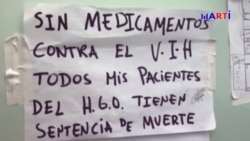 SIN MEDICAMENTOS
CONTRA EL V.I.H
TODOS MIS PACIENTES
DEL H.G.O. TIENEN
SENTENCIA DE MUERTE
MARTÍ